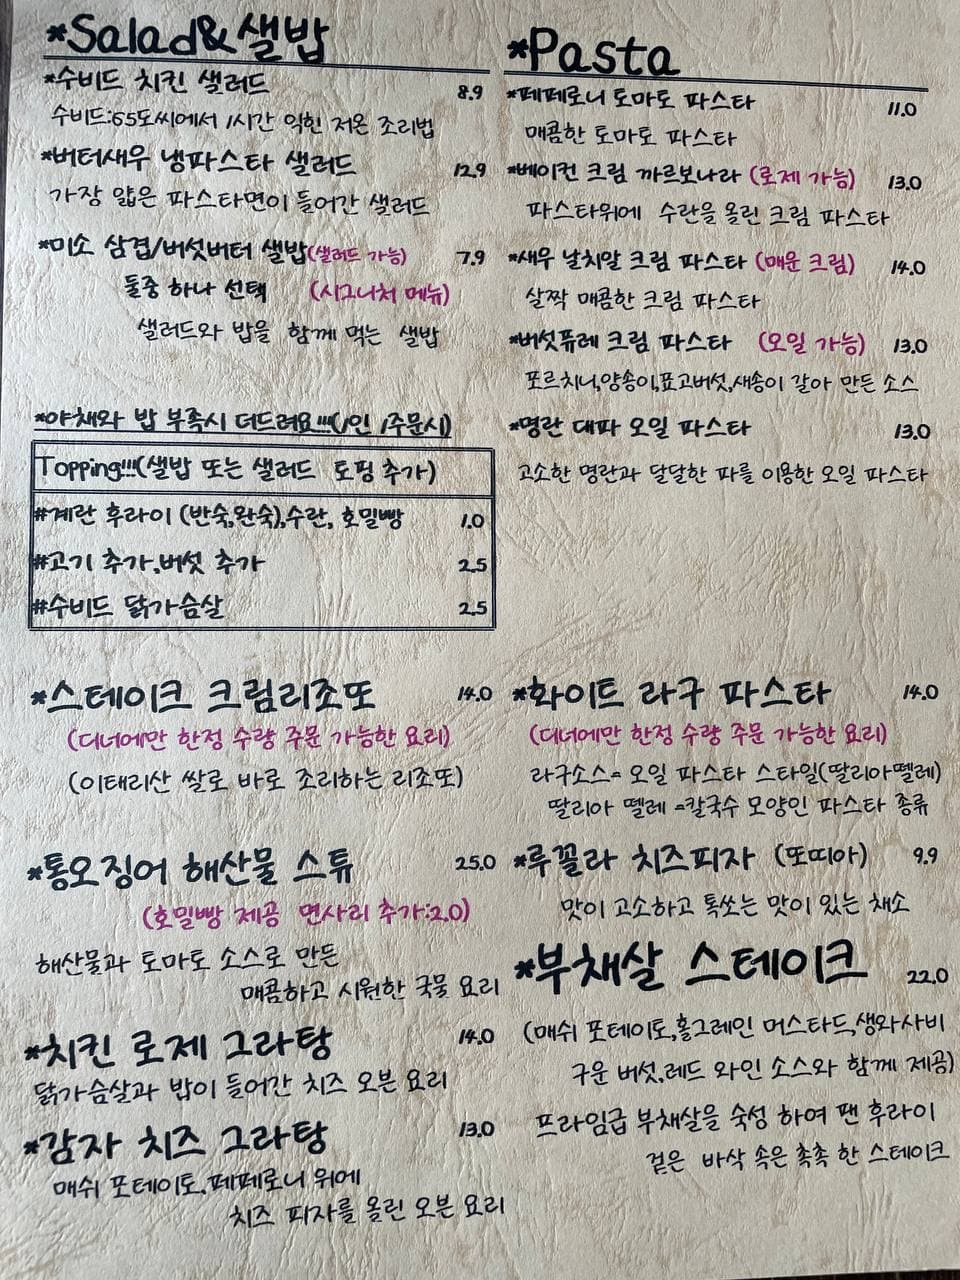 *Salad&샐밥
*수비드 치킨 샐러드 8.9
수비드:65도씨에서 1시간 익힌 저온 조리법
*버터새우 냉파스타 샐러드 12.9
가장 얇은 파스타면이 들어간 샐러드
*미소 삼겹/버섯버터 샐밥(샐러드 가능) 7.9
둘중 하나 선택 (시그니처 메뉴)
샐러드와 밥을 함께 먹는 샐밥
*야채와 밥 부족시 더드려요!!!(1인 1주문시)
Topping!!!(샐밥 또는 샐러드 토핑 추가)
#계란 후라이 (반숙,완숙),수란, 호밀빵 1.0
#고기 추가,버섯 추가 2.5
#수비드 닭가슴살 2.5
*Pasta
*페페로니 토마토 파스타 11.0
매콤한 토마토 파스타
*베이컨 크림 까르보나라 (로제 가능) 13.0
파스타위에 수란을 올린 크림 파스타
*새우 날치알 크림 파스타 (매운 크림) 14.0
살짝 매콤한 크림 파스타
*버섯퓨레 크림 파스타 (오일 가능) 13.0
포르치니,양송이,표고버섯,새송이 갈아 만든 소스
*명란 대파 오일 파스타 13.0
고소한 명란과 달달한 파를 이용한 오일 파스타
*스테이크 크림리조또 14.0
(디너에만 한정 수량 주문 가능한 요리)
(이태리산 쌀로 바로 조리하는 리조또)
*통오징어 해산물 스튜 25.0
(호밀빵 제공 면사리 추가:2.0)
해산물과 토마토 소스로 만든
매콤하고 시원한 국물 요리
*치킨 로제 그라탕 14.0
닭가슴살과 밥이 들어간 치즈 오븐 요리
*감자 치즈 그라탕 13.0
매쉬 포테이토,페페로니 위에
치즈 피자를 올린 오븐 요리
*화이트 라구 파스타 14.0
(디너에만 한정 수량 주문 가능한 요리)
라구소스= 오일 파스타 스타일(딸리아뗼레)
딸리아 뗼레 =칼국수 모양인 파스타 종류
*루꼴라 치즈피자 (또띠아) 9.9
맛이 고소하고 톡쏘는 맛이 있는 채소
*부채살 스테이크 22.0
(매쉬 포테이토,홀그레인 머스타드,생와사비
구운 버섯,레드 와인 소스와 함께 제공)
프라임급 부채살을 숙성 하여 팬 후라이
겉은 바삭 속은 촉촉 한 스테이크